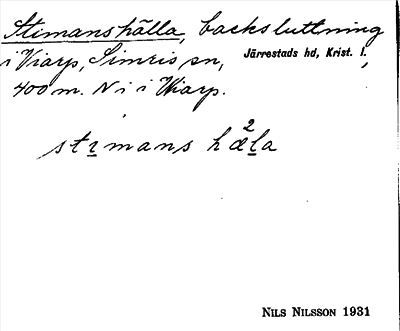 Stimanshälla, backsluttning
i Viarp, Simris sn, Järrestads hd, Krist. l.,
400 m. N i i Wiarp.
stịmans hæ²ḷa
NILS NILSSON 1931